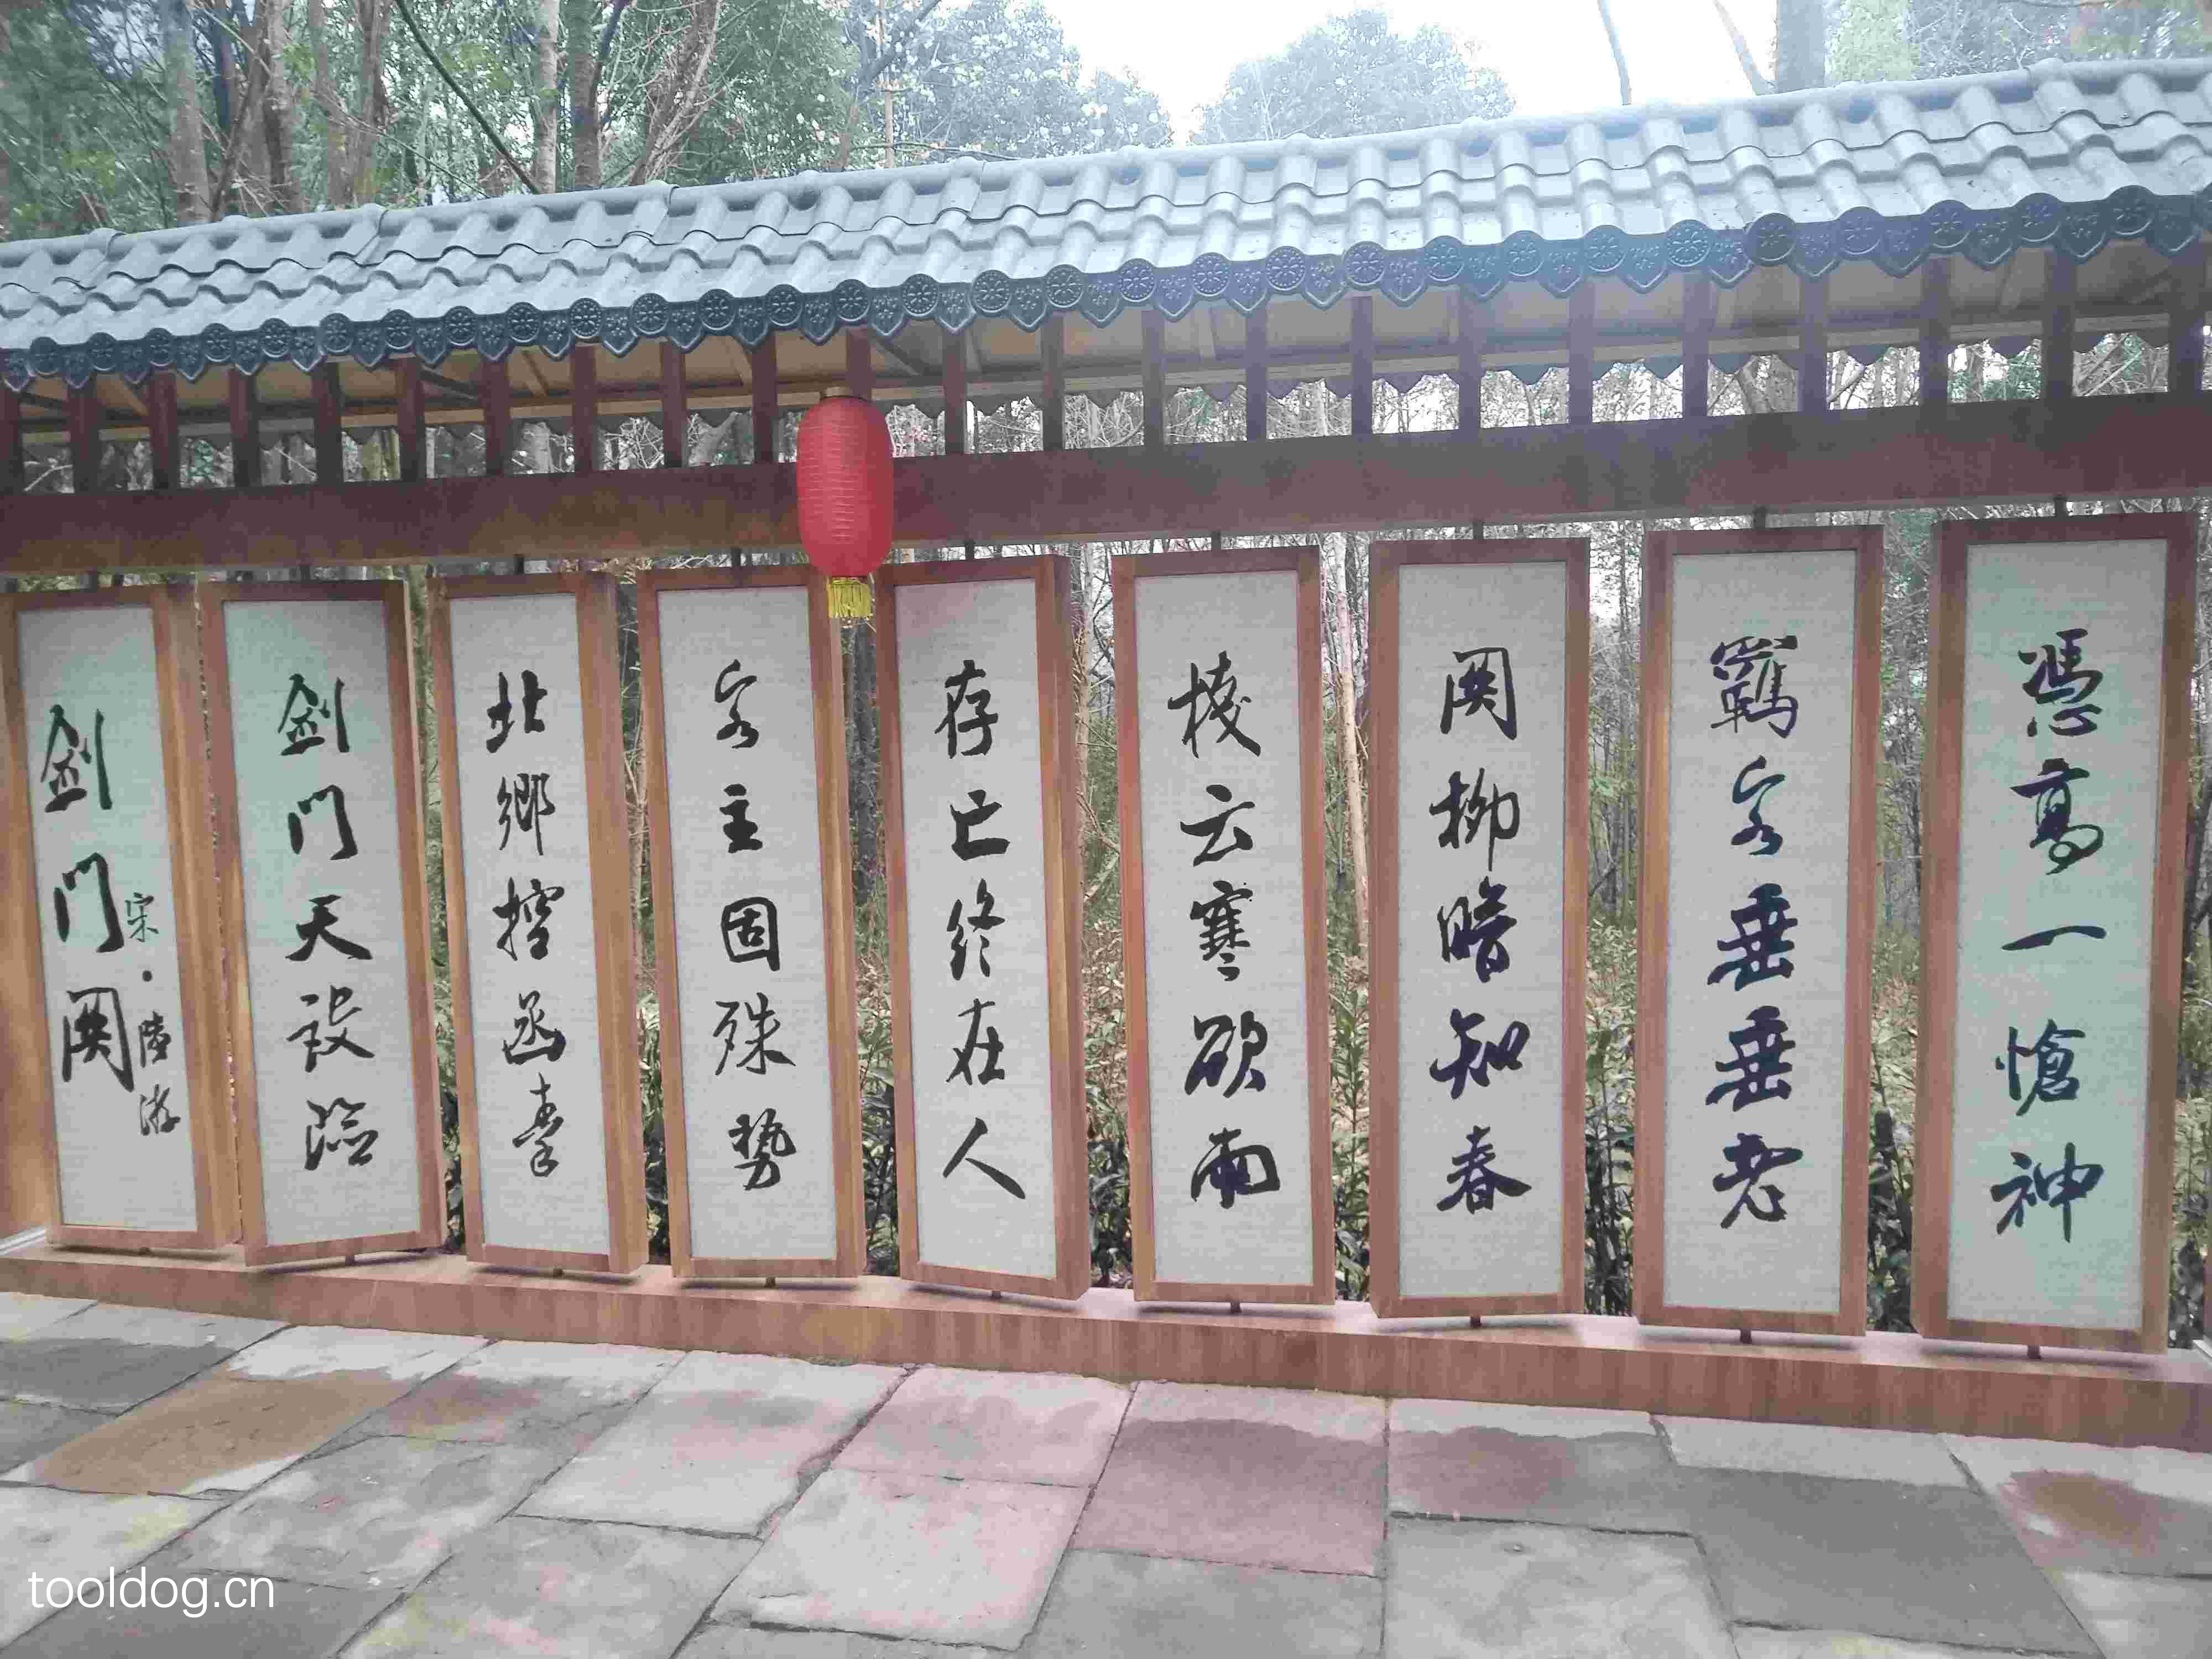 剑门関
宋·陸游
剑门天设险
北鄉控函秦
客主固殊势
存亡终在人
栈云寒欲雨
関柳暗知春
羁客垂垂老
憑高一愴神
tooldog.cn